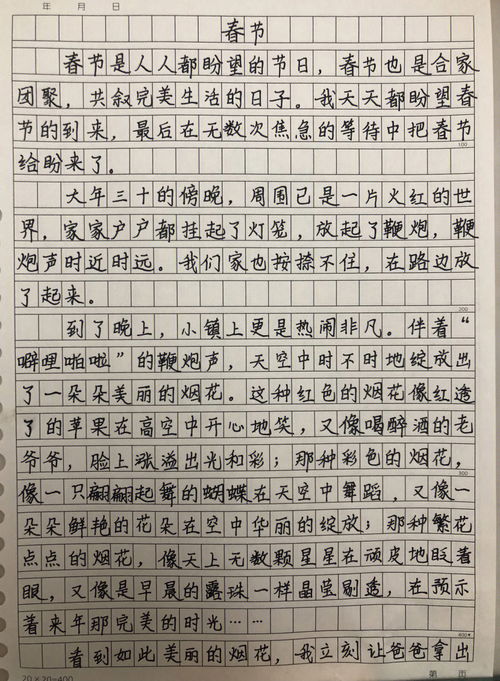 年 月 日
春节
春节是人人都盼望的节日，春节也是合家
团聚，共叙完美生活的日子。我天天都盼望春
节的到来，最后在无数次焦急的等待中把春节
给盼来了。
100
大年三十的傍晚，周围已是一片火红的世
界，家家户户都挂起了灯笼，放起了鞭炮，鞭
炮声时近时远。我们家也按捺不住，在路边放
了起来。
200
到了晚上，小镇上更是热闹非凡。伴着“
噼哩啪啦”的鞭炮声，天空中时不时地绽放出
了一朵朵美丽的烟花。这种红色的烟花像红透
了的苹果在高空中开心地笑，又像喝醉酒的老
爷爷，脸上涨溢出光和彩；那种彩色的烟花，
300
像一只翩翩起舞的蝴蝶在天空中舞蹈，又像一
朵朵鲜艳的花朵在空中华丽的绽放；那种繁花
点点的烟花，像天上无数颗星星在顽皮地眨着
眼，又像是早晨的露珠一样晶莹剔透，在预示
着来年那完美的时光……
400
看到如此美丽的烟花，我立刻让爸爸拿出
20×20=400 第 页